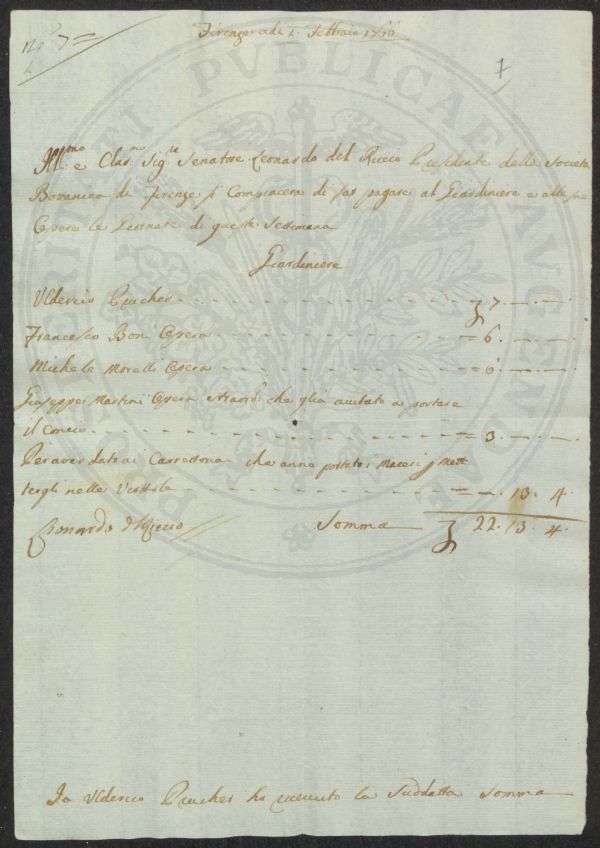 N.º 7 =
7
Firenze adi 1. Febbraio 1766
Ill.mo e Clar.mo Sig.re Senatore Leonardo del Riccio Presidente della Società
Bottanica di Firenze si Compiacerà di far pagare al Giardiniere e alle sue
Opere le Giornate di questa Settimana
Giardiniere
Ulderico Prucher - - - - 7. — . —
Francesco Boni Opera - - - - = 6. — . —
Michele Morelli Opera - - - - = 6. — . —
Giuseppe Martini Opera straord. che glià aiutato a portare
il Concio - - - - = 3. — . —
Per aver dato ai Carrettonai che anno portato i Maceri p. Mett
tergli nelle - - - - = — . 13. 4.
Leonardo d Riccio Somma — 22. 13. 4.
Io Ulderico Prucher ho ricevuto la Suddetta Somma
POSTERITATI PUBLICAE AUGENDAE